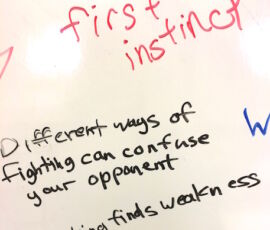 first
instinct
Different ways of
fighting can confuse
your opponent
finds weakness